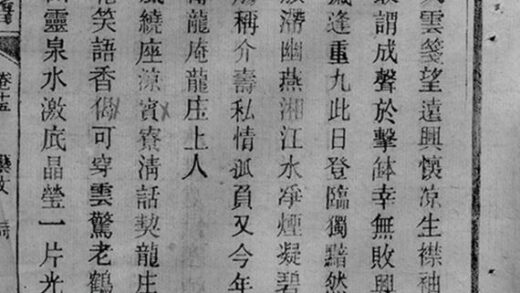 雲箋望遠興懷凉生襟袖
謂成聲於擊缽幸無敗興
逢重九此日登臨獨黯然
滯幽燕湘江水淨煙凝碧
稱介壽私情孤負又今年
龍庵龍庄上人
風繞座凉賓寮清話契龍庄
笑語香偈可穿雲驚老鶴
靈泉水激底晶瑩一片光
卷十五 藝文